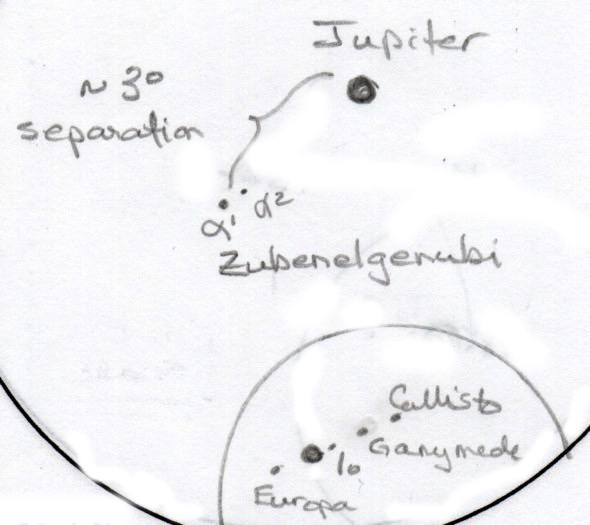 Jupiter
~ 3°
separation
α¹ α²
Zubenelgenubi
Callisto
Ganymede
Io
Europa